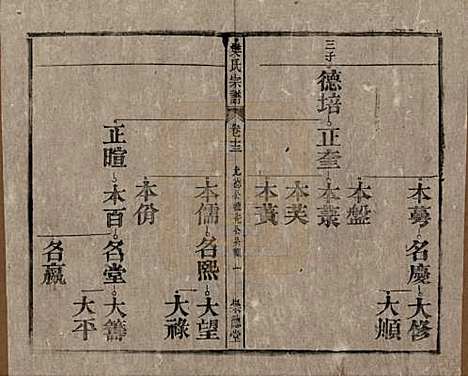 三子
德培 正奎 本葉
本蕚 名慶 大修
大順
本盤
本芙
本蕡
樊氏宗譜
卷十三
一
樊德堂
本儒 名熙 大望
大祿
本佾
正暄 本百 名堂 大籌
大平
名贏